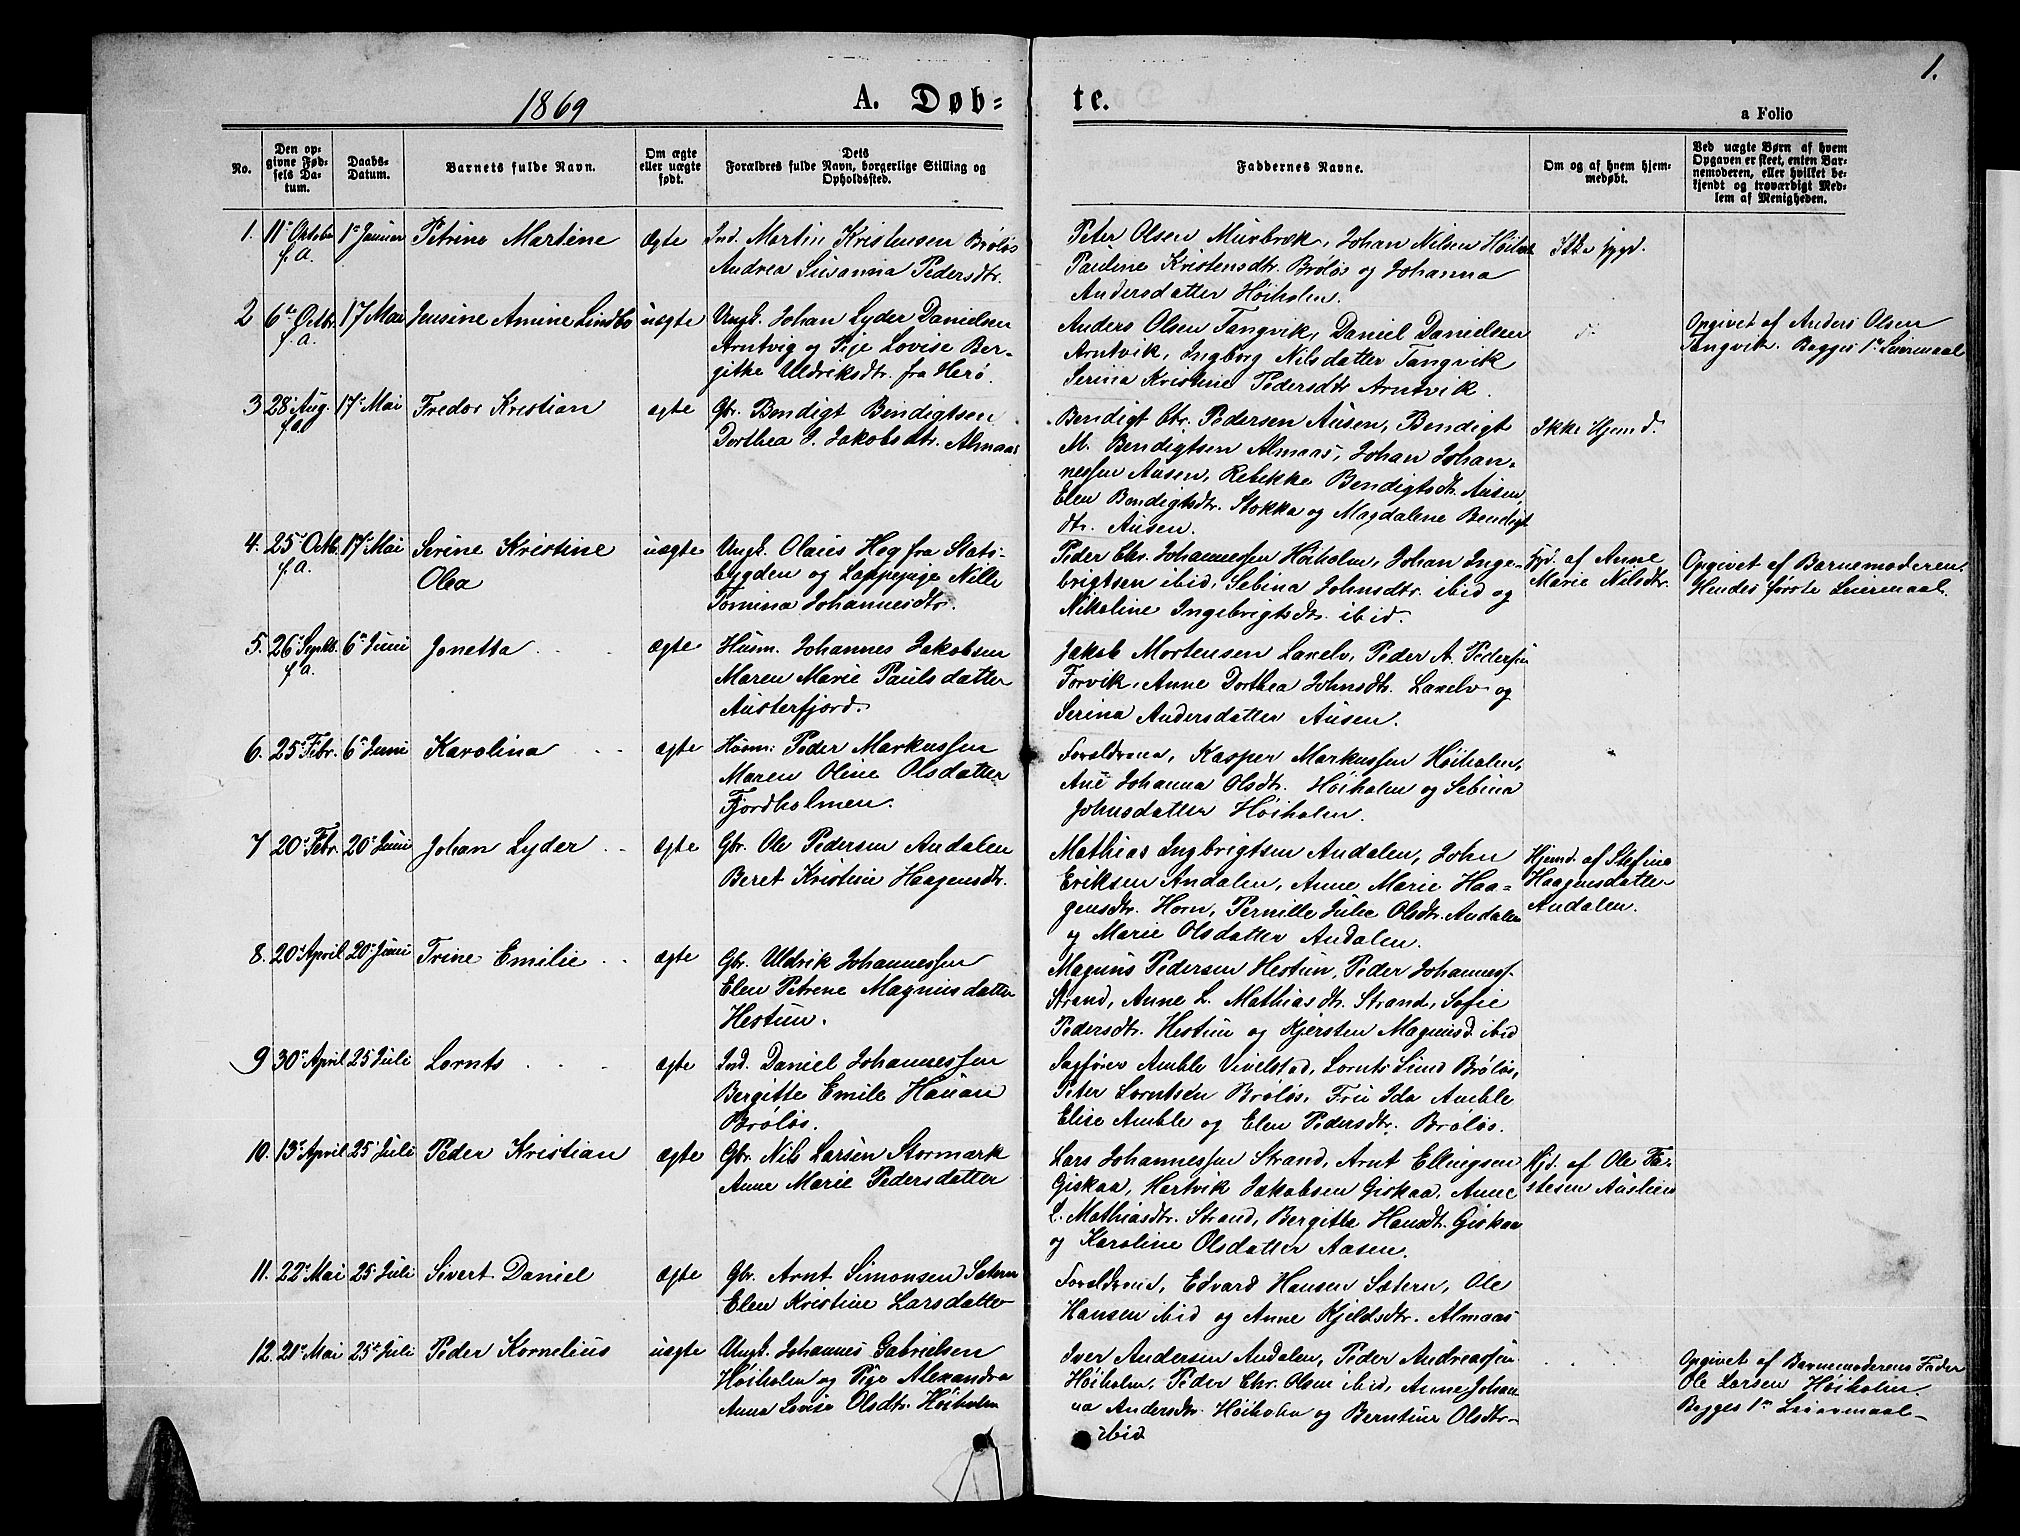 1.
1869 A. Døb= te.
a Folio
No.
Den op-
givne Fød-
sels Da-
tum.
Daabs-
Datum.
Barnets fulde Navn.
Om ægte
eller uægte
født.
Dets
Forældres fulde Navn, borgerlige Stilling og
Opholdssted.
Faddernes Navne.
Om og af hvem hjem-
medøbt.
Ved uægte Børn af hvem
Opgaven er skeet, enten Bar-
nemoderen, eller hvilket be-
kjendt og troværdigt Med-
lem af Menigheden.
1. 11te Octobr f. A. 1te Januar Petrine Martine Ægte
Ind. Martin Kristensen Brøløs
Andrea Susanna Pedersdtr.
Peter Olsen Murbræk, Johan Nilsen Høiholm
Pauline Kristensdtr. Brøløs og Johanna
Andersdatter Høiholm.
Ikke hjd.
2 6te Octbr. f. A. 17 Mai Jensine Amine Lindbo uægte
Ungk. Johan Lyder Danielsen
Arntvig og Pige Lovise Ber-
gitke Uldriksdtr. fra Herø.
Anders Olsen Tangvik, Daniel Danielsen
Arntvik, Ingborg Nilsdatter Tangvik
Serina Kristine Pedersdtr Arntvik.
Opgivet af Anders Olsen
Tangvik. Begges 1ste Leiermaal
3 28 Aug. f. A. 17 Mai Fredor Kristian ægte
Gbr. Bendigt Bendigtsen
Dorthea J. Jakobsdtr. Almaas
Bendigt Chr. Pedersen Ausen, Bendigt
M. Bendigtsen Almaas, Johan Johan-
nessen Ausen, Rebekke Bendigtsdtr. Ausen,
Elen Bendigtsdtr. Stokka og Magdalene Bendigt
dtr. Ausen.
Ikke Hjemd.
4. 25 Octb. f. A. 17 Mai Serine Kristine
Olea
uægte
Ungk. Olaus Hog fra Stats-
bygden og Lappepige Nille
Tomina Johannesdtr.
Peder Chr. Johannessen Høiholm, Johan Inge-
brigtsen ibid, Sebina Johnsdtr. ibid og
Nikoline Ingebrigtsdtr. ibid.
Hjd. af Anne
Marie Nilsdtr.
Opgivet af Barnemoderen.
Hendes første Leiermaal.
5. 26 Septb. f. A. 6 Juni Jonetta ægte
Husm. Johannes Jakobsen
Maren Marie Paulsdatter
Austerfjord.
Jakob Mortensen Laxelv, Peder A. Pedersen
Forvik, Anne Dorthea Johnsdtr. Laxelv og
Serina Andersdatter Ausen.
6. 25 Febr. 6 Juni Karolina ægte
Husm. Peder Markussen
Maren Oline Olsdatter
Fjordholmen.
Forældrene, Kasper Markussen Høiholm,
Ane Johanna Olsdtr. Høiholm og Sebina
Johnsdatter Høiholm.
7 20 Febr. 20 Juni Johan Lyder ægte
Gbr. Ole Pedersen Andalen
Beret Kristine Haagensdtr.
Mathias Ingbrigtsen Andalen, John
Eriksen Andalen, Anne Marie Haa-
gensdtr. Horn, Pernille Julie Olsdtr. Andalen
og Marie Olsdatter Andalen.
Hjemd. af Stefine
Haagensdatter
Andalen.
8. 20 April 20 Juni Trine Emilie ægte
Gbr. Uldrik Johannessen
Elen Petrene Magnusdatter
Hestun.
Magnus Pedersen Hestun, Peder Johanness.
Strand, Anne L. Mathiasdtr. Strand, Sofie
Pedersdtr. Hestun og Kjersten Magnusd. ibid
9 30 April 25 Juli Lornts ægte
Ind. Daniel Johannessen
Bergitte Emile Hauan
Brøløs.
Sagfører Amble Vivelstad, Lornts Lund Brøløs,
Peter Lorntsen Brøløs, Fru Ida Amble
Elise Amble og Elen Pedersdtr. Brøløs.
10. 13 April 25 Juli Peder Kristian ægte
Gbr. Nils Larsen Stormark
Anne Marie Pedersdatter
Lars Johannessen Strand, Arnt Ellingsen
Giskaa, Hertvik Jakobsen Giskaa, Anne
L. Mathiasdtr. Strand, Bergitta Hansdtr. Giskaa
og Karoline Olsdatter Aasen.
Hjd. af Ole To-
stesen Auslien
11. 22 Mai 25 Juli Sivert Daniel ægte
Gbr. Arnt Simonsen Sætern
Elen Kristine Larsdatter
Forældrene, Edvard Hansen Sætern, Ole
Hansen ibid og Anne Kjeldsdtr. Almaas
12. 21 Mai 25 Juli Peder Kornelius uægte
Ungk. Johannes Gabrielsen
Høiholm og Pige Alexandra
Anna Lovise Olsdtr. Høiholm
Iver Andersen Andalen, Peder Andreassen
Høiholm, Peder Chr. Olsen ibid, Anne Johan
na Andersdtr. Høiholm og Berntine Olsdtr.
ibid
Opgivet af Barnemoderens Fader
Ole Larsen Høiholm.
Begges 1ste Leiermaal